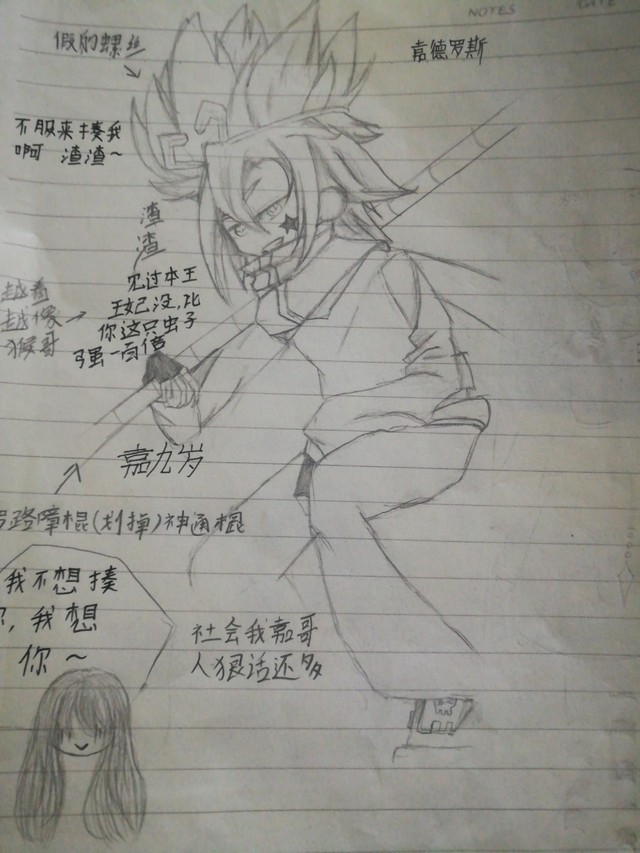 NOTES
DATE
假的螺丝
嘉德罗斯
不服来揍我
啊 渣渣~
渣
渣
见过本王
王妃已没,比
你这只虫子
强一百倍
越看
越像
猴哥
嘉九岁
路障棍(划掉)神通棍
我不想揍
,我想
你~
社会我嘉哥
人狠话还多